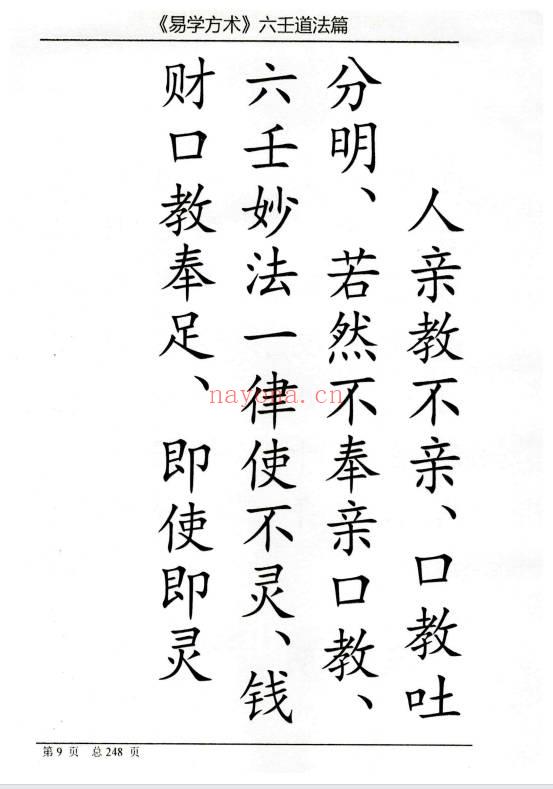 《易学方术》六壬道法篇
人亲教不亲、口教吐
分明、若然不奉亲口教、
六壬妙法一律使不灵、钱
财口教奉足、即使即灵
nayona.cn
第9页 总248页